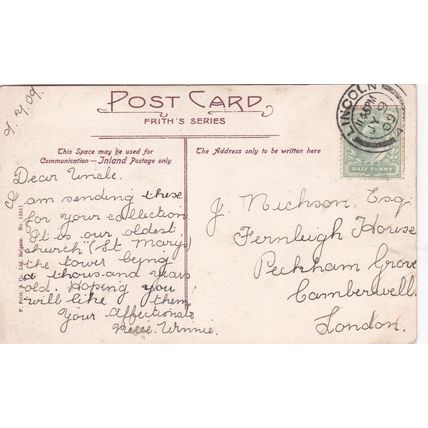 9.7.09.
POST CARD
FRITH'S SERIES
LINCOLN
11.45PM
JY 9
09
HALF PENNY
This Space may be used for
Communication — Inland Postage only
The Address only to be written here
Dear Uncle.
am sending these
for your collection
It is our oldest
church (St Marys)
the tower being
a thousand years
old. Hoping you
will like them
Your Affectionate
niece Winnie.
J. Nickson. Esq.
Fernleigh House
Peckham Grove
Camberwell.
London.
F. Frith & Co. Ltd. Reigate. No.